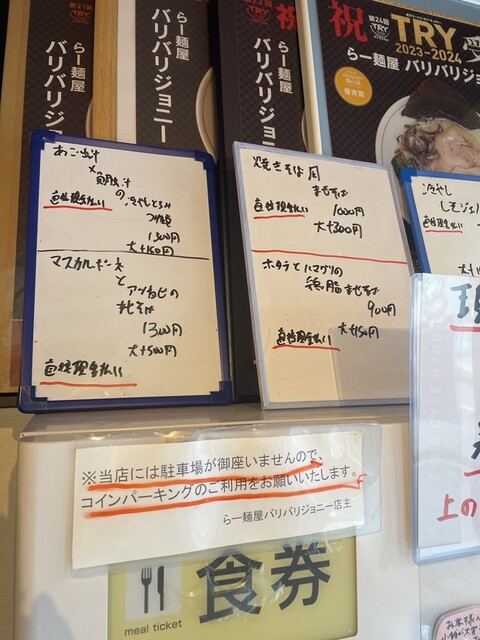 第21回
TRY
らー麺屋
バリバリジョニー
らー麺屋
バリバリジョニー
第23回
TRY
祝
らー麺屋
バリバリジョニー
祝
第24回
TRY
TRY
2023-2024
受
らー麺屋 バリバリジョニ
優秀賞
あご出汁
×
の冷やしとろみ
直接現金払い
つけ麺
1300円
大+150円
マスカルポーネ
と
アンチョビの
まぜそば
1300円
大+500円
直接現金払い
焼きそば風
まぜそば
直接現金払い
1000円
大+300円
ホタテとハマグリの
鶏脂まぜそば
900円
大+150円
直接現金払い
冷やし
しそジェ
直接現金払い
現
上の
※当店には駐車場が御座いませんので、
コインパーキングのご利用をお願いいたします。
らー麺屋バリバリジョニー店主
食券
meal ticket
お客様へ